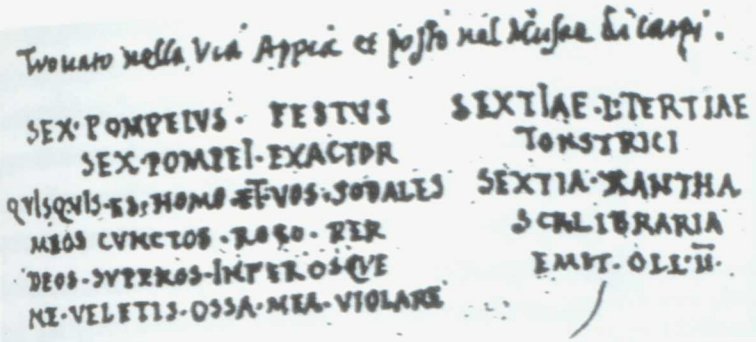 Trouato nella Via Appia et posto nel Museo di Carpi.
SEX·POMPEIVS· FESTVS
SEX·POMPEI·EXACTOR
QVISQVIS·ES·HOMO·ET·VOS·SODALES
MEOS CVNCTOS·ROGO·PER
DEOS·SVPEROS·INFEROSQVE
NE·VELETIS·OSSA·MEA·VIOLARE
SEXTIAE·L·TERTIAE
TONSTRICI
SEXTIA·XANTHA
SCRLIBRARIA
EMIT·OLL·II·